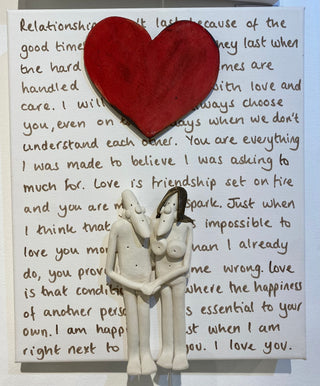 Relationship t last because of the
good time ney last when
the hard mes are
handled with love and
care. I will ways choose
you, even on days when we don't
understand each other. You are everything
I was made to believe I was asking to
much for. Love is friendship set on fire
and you are m spark. Just when
I think that impossible to
love you mo han I already
do, you prov me wrong. Love
is that conditi where the happiness
of another perso s essential to your
own. I am happ st when I am
right next to you. I love you.